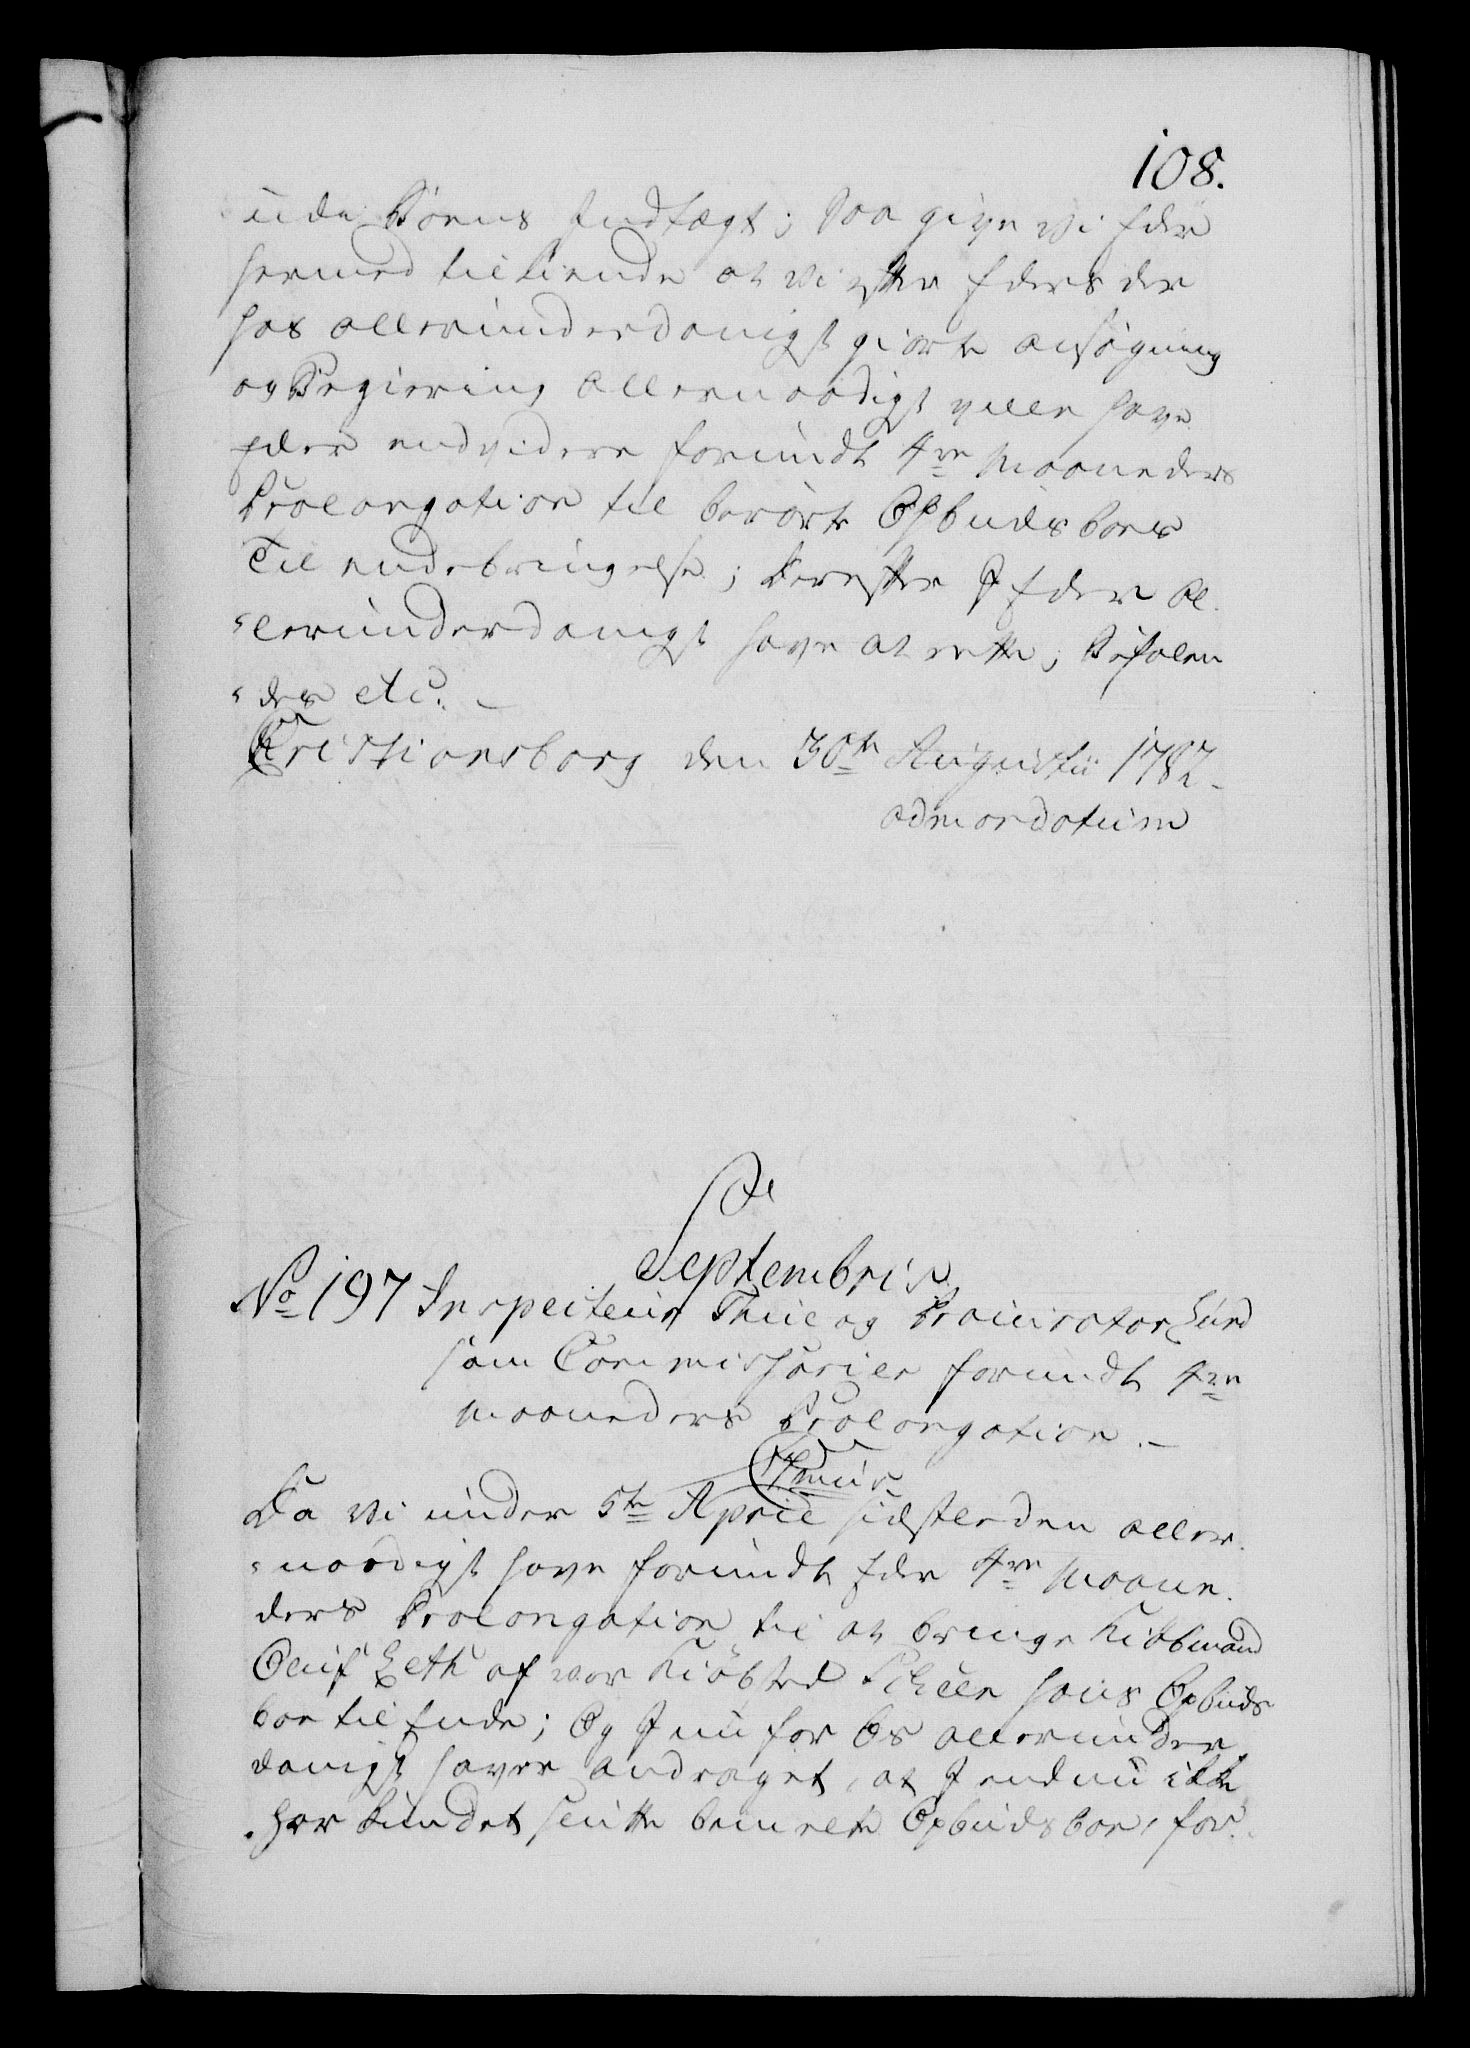 108.
ude Börns Indtægt; saa give vi Eder
hermed tilkiende at vi efter Eders der
hos allerunderdanigst giorte ansøgning
og Begiering allernaadigst ville have
Eder endvidere forundt 4re Maaneders
Prolongation til berørte Opbudsboes
Til endebringelse; derefter I Eder al-
lerunderdanigst have at rette; Befalen
des etc. –
Christiansborg den 30te Augustii 1782 –
ad mandatum
Septembris
No 197 Inspecteur Thue og Procurator Lund
som Commissarier forundt 4re
Maaneders Prolongation. –
Da vi under 5te April sidstleden aller-
naadigst have forundt Eder 4re Maane-
ders Prolongation til at bringe Kiøbmand
Oluf Leth af vor Kiøbsted Scheen hans Opbuds
boe til Ende; Og I nu for Os allerunder
danigst haver andraget, at I endnu ikke
har kundet slutte bemelte Opbudsboe, for-